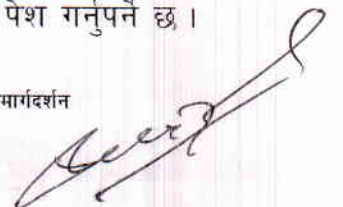 पेश गर्नुपर्ने छ ।
मार्गदर्शन